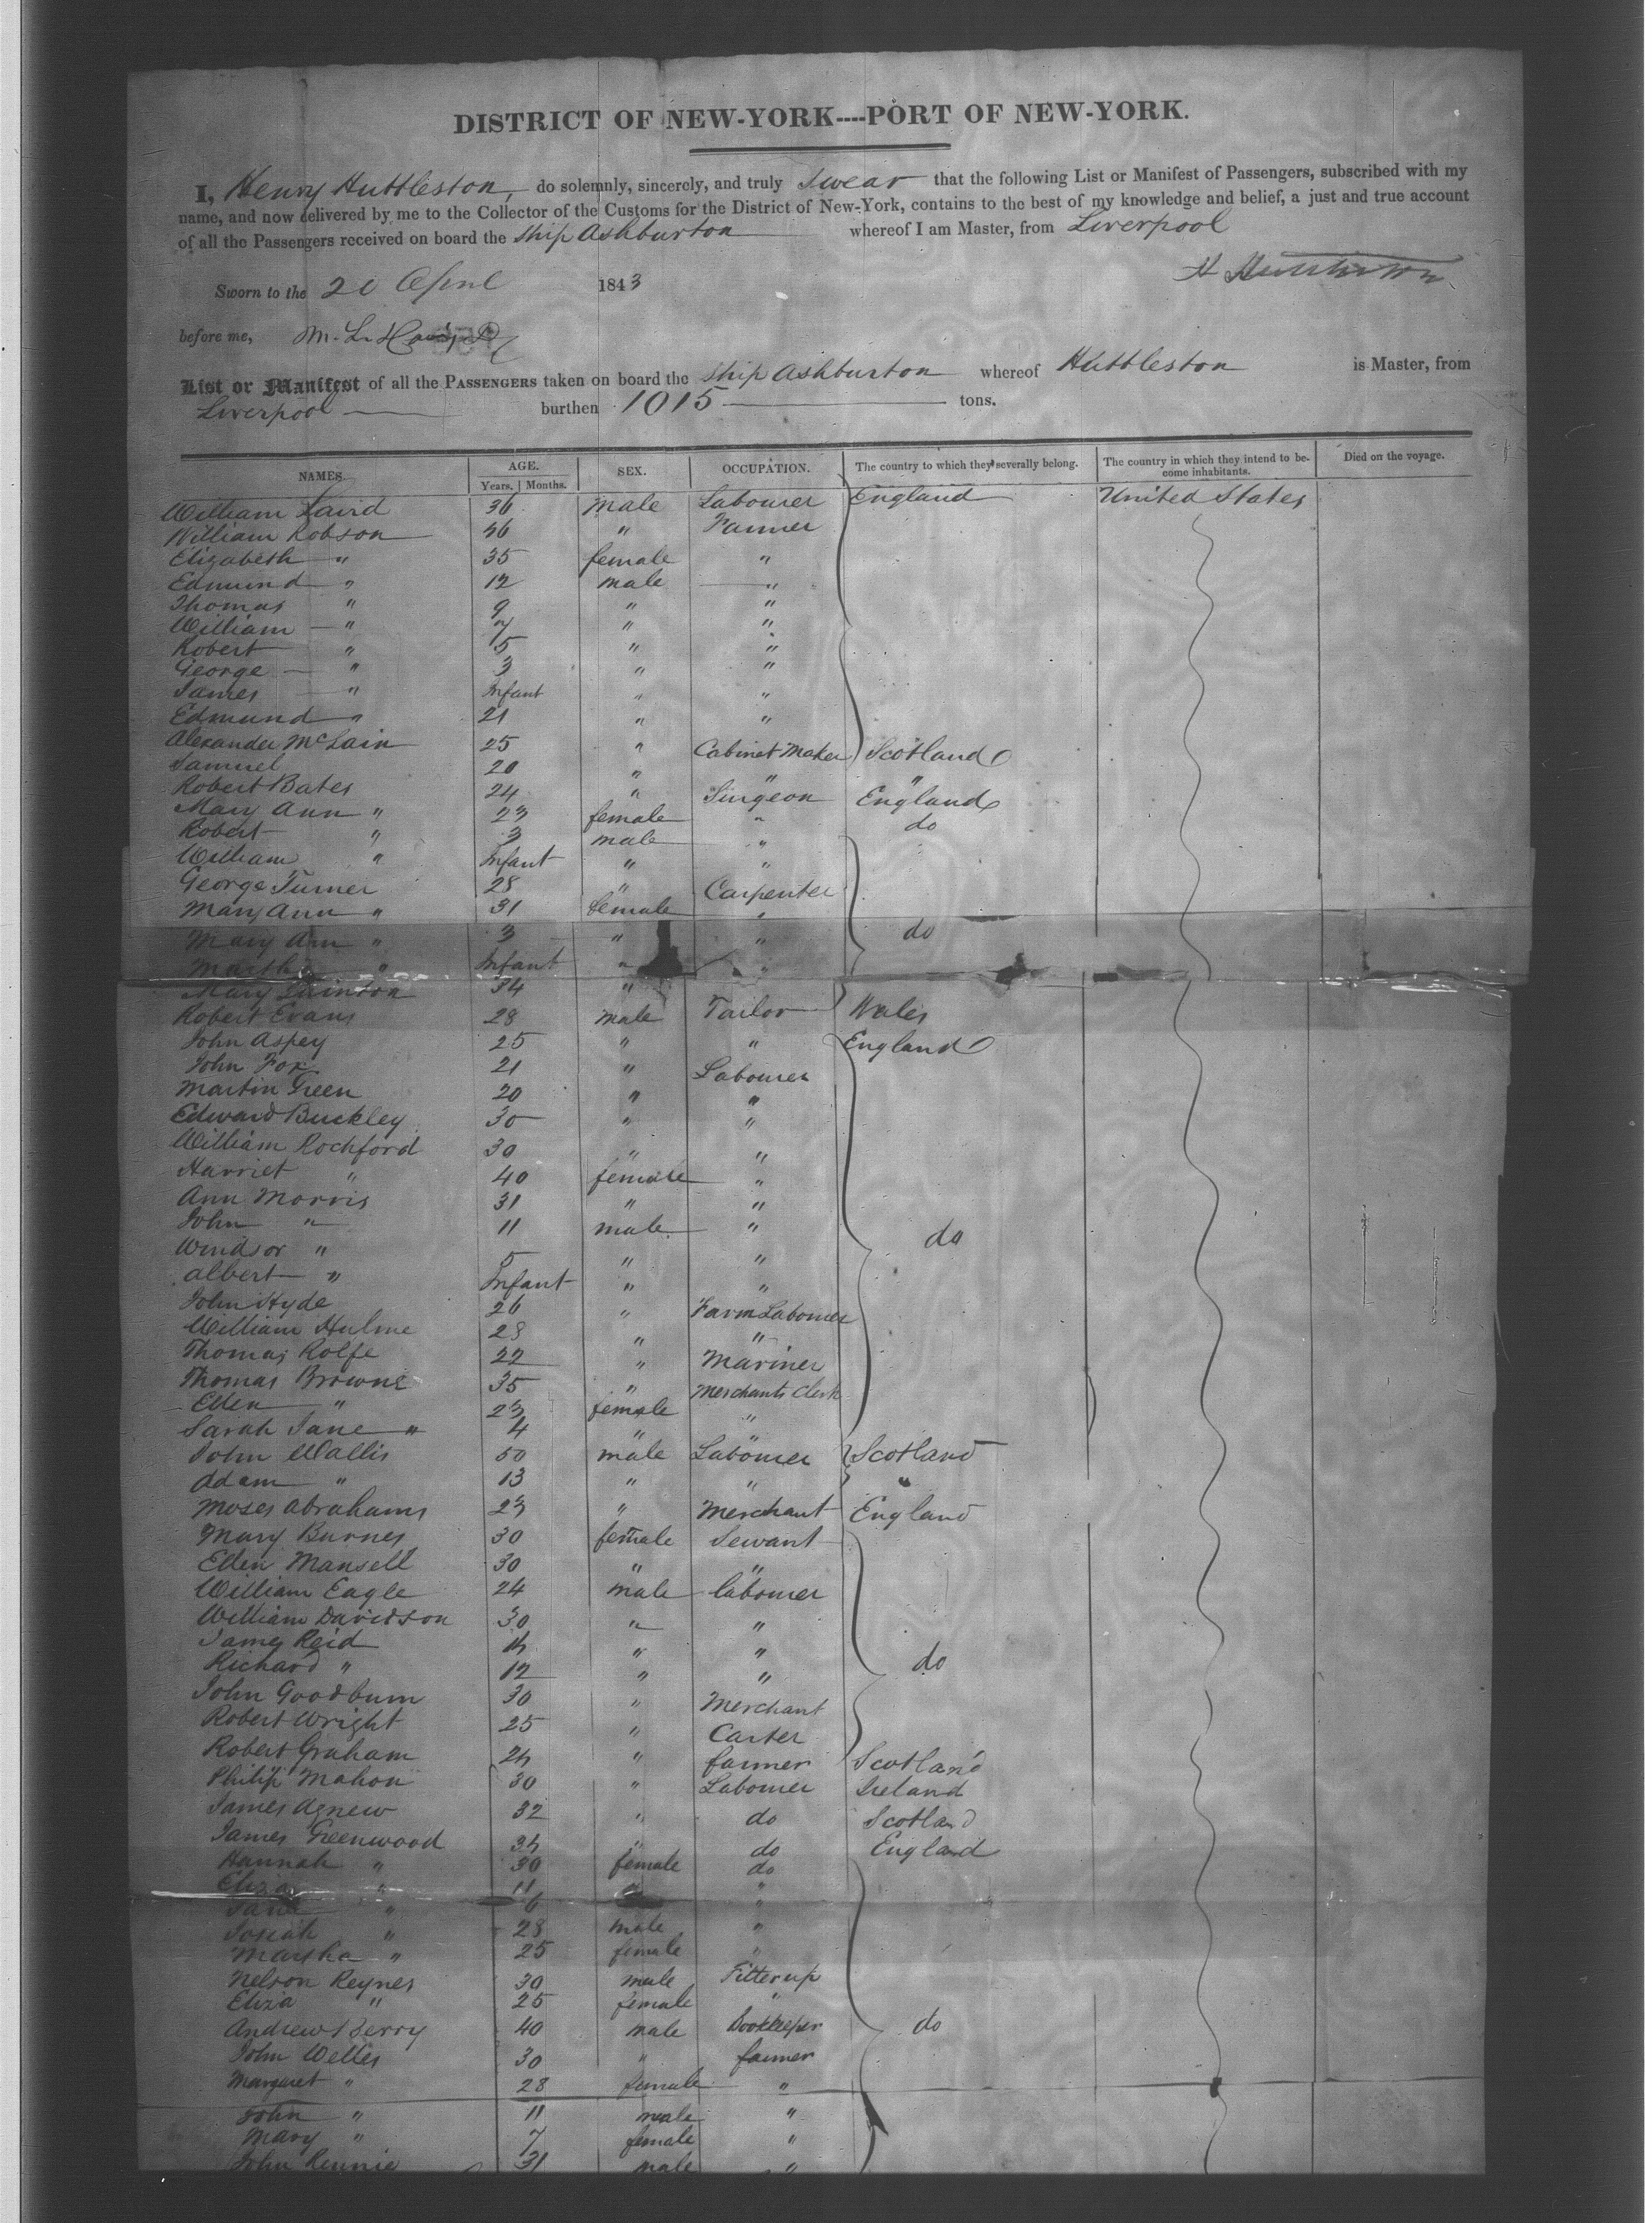 DISTRICT OF NEW-YORK----PORT OF NEW-YORK.
I, Henry Huttleston, do solemnly, sincerely, and truly Swear that the following List or Manifest of Passengers, subscribed with my
name, and now delivered by me to the Collector of the Customs for the District of New-York, contains to the best of my knowledge and belief, a just and true account
of all the Passengers received on board the Ship Ashburton whereof I am Master, from Liverpool
Sworn to the 20 April 1843
before me, M. L.
List or Manifest of all the PASSENGERS taken on board the Ship Ashburton whereof Huttleston is Master, from
Liverpool burthen 1015 tons.
NAMES. AGE. SEX. OCCUPATION. The country to which they severally belong. The country in which they intend to be- Died on the voyage.
Years. Months. come inhabitants.
William Laird 36 Male Labourer England United States
William Robson 46 " Farmer
Elizabeth " 35 female "
Edmund " 12 male "
Thomas " 9 " "
William " 7 " "
Robert " 5 " "
George " 3 " "
James " Infant " "
Edmund " 21 " "
Alexander McLain 25 " Cabinet Maker Scotland
Samuel 20 " " "
Robert Bates 24 " Surgeon England
Mary Ann " 23 female " do
Robert " 3 male "
William " Infant " "
George Turner 28 " Carpenter
Mary Ann " 31 female "
Mary Ann " 3 " " do
Martha " Infant " "
Mary 34 "
Robert Evans 28 male Tailor Wales
John Aspey 25 " " England
John Fox 21 " Labourer
Martin Green 20 " "
Edward Buckley 30 " "
William Rochford 30 " "
Harriet " 40 female "
Ann Morris 31 " "
John " 11 male " do
Windsor " 5 " "
Albert " Infant " "
John Hyde 26 " Farm Labourer
William Hulme 28 " "
Thomas Rolfe 22 " Mariner
Thomas Browne 35 " Merchants Clerk
Ellen " 23 female "
Sarah Jane " 4 " "
John Wallis 50 male Labourer Scotland
Adam " 13 " " "
Moses Abrahams 23 " Merchant England
Mary Burnes 30 female Servant
Ellen Mansell 30 " "
William Eagle 24 male labourer
William Davidson 30 " "
James Reid 14 " "
Richard " 12 " " do
John Goodburn 30 " Merchant
Robert Wright 25 " Carter
Robert Graham 24 " farmer Scotland
Philip Mahon 30 " Labourer Ireland
James Agnew 32 " do Scotland
James Greenwood 34 " do England
Hannah " 30 female do
Eliza " 11 " "
Jane " 6 "
Josiah " 28 male "
Martha " 25 female "
Nelson Reynes 30 male Fitter up
Eliza " 25 female "
Andrew Berry 40 male Bookkeeper do
John Welles 30 " farmer
Margaret " 28 female "
John " 11 male "
Mary " 7 female "
John Rennie 31 male "